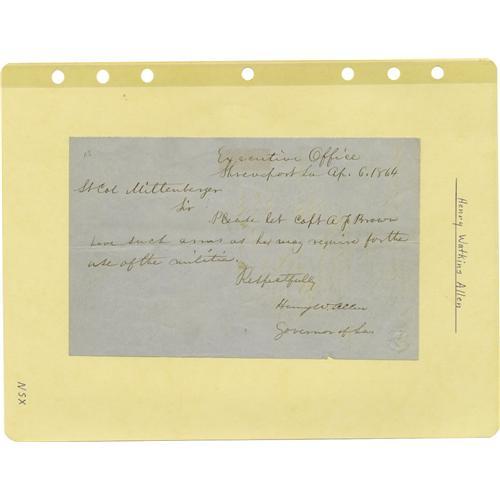 Executive Office
Shreveport La Ap. 6. 1864
Lt Col Miltenberger
Sir
Please let Capt A J Brown
have such arms as he may require for the
use of the militia.
Respectfully
Henry W. Allen
Governor of La
Henry Watkins Allen
NSX